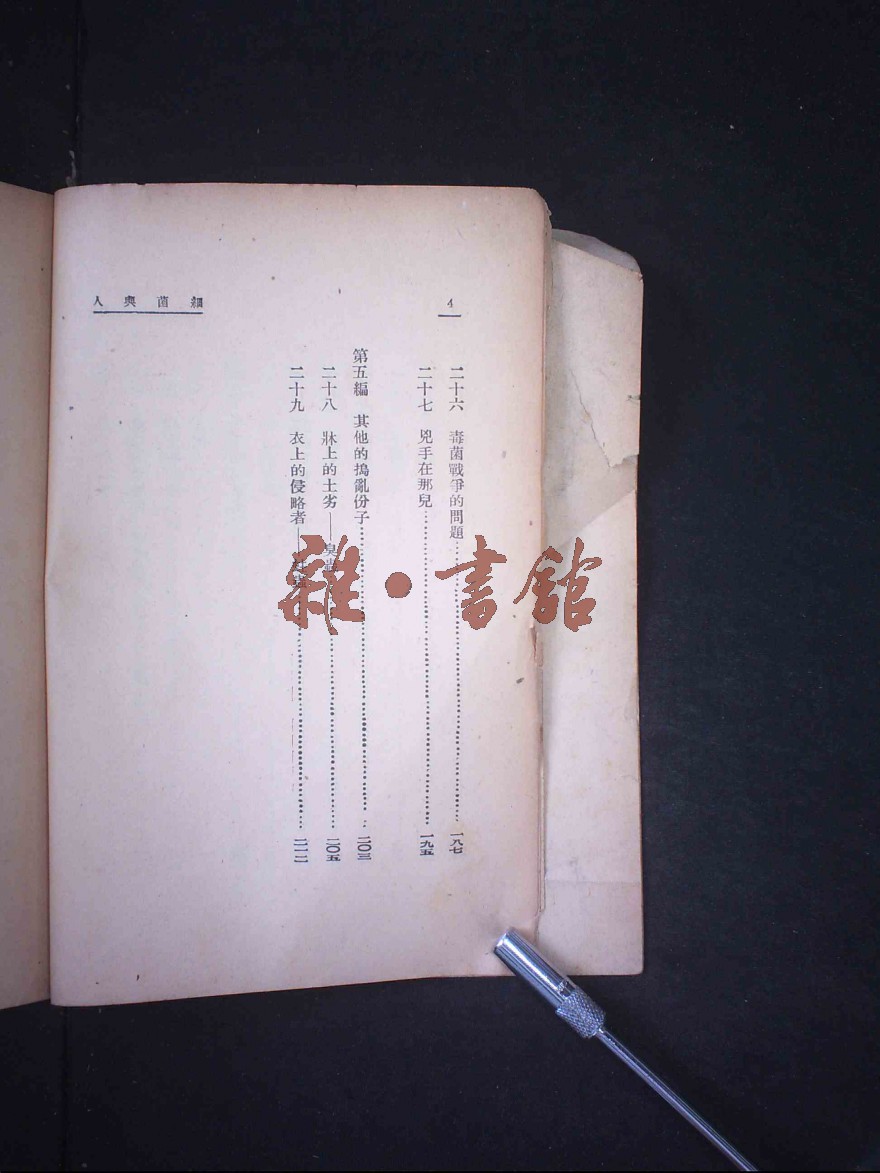 細菌與人
4
二十六　毒菌戰爭的問題……一八七
二十七　兇手在那兒……一九五
第五編　其他的搗亂份子……二〇三
二十八　牀上的土劣——臭蟲……二〇五
二十九　衣上的侵略者——……二一二
雜・書館